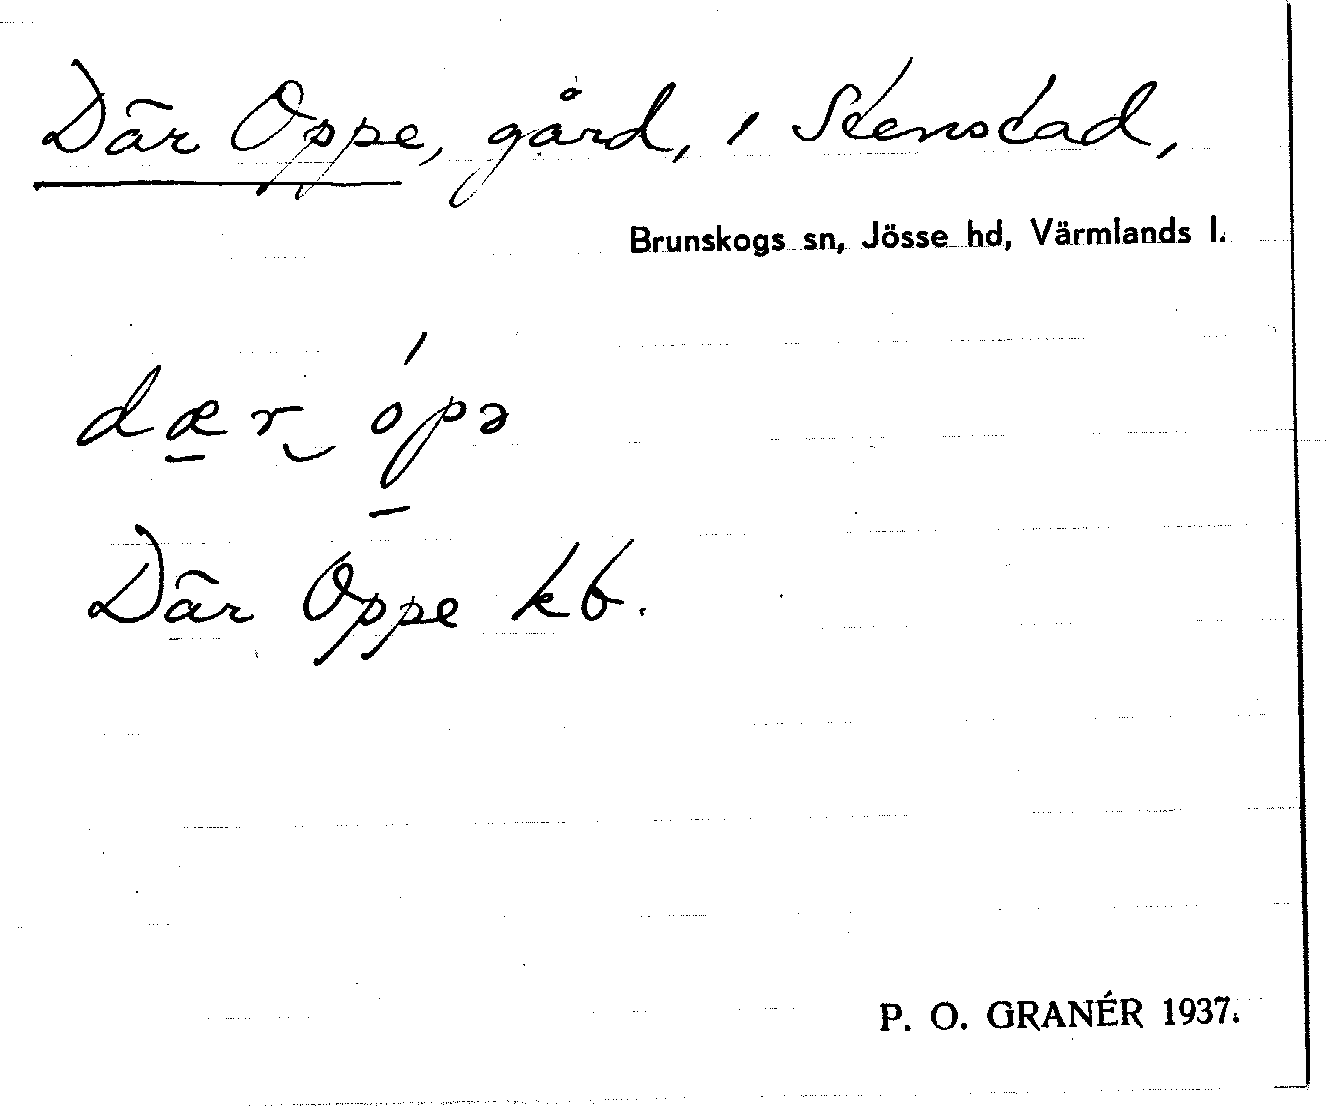 Där Oppe, gård, i Stenstad,
Brunskogs sn, Jösse hd, Värmlands l.
dær‿ópə
Där Oppe kb.
P. O. GRANÉR 1937.